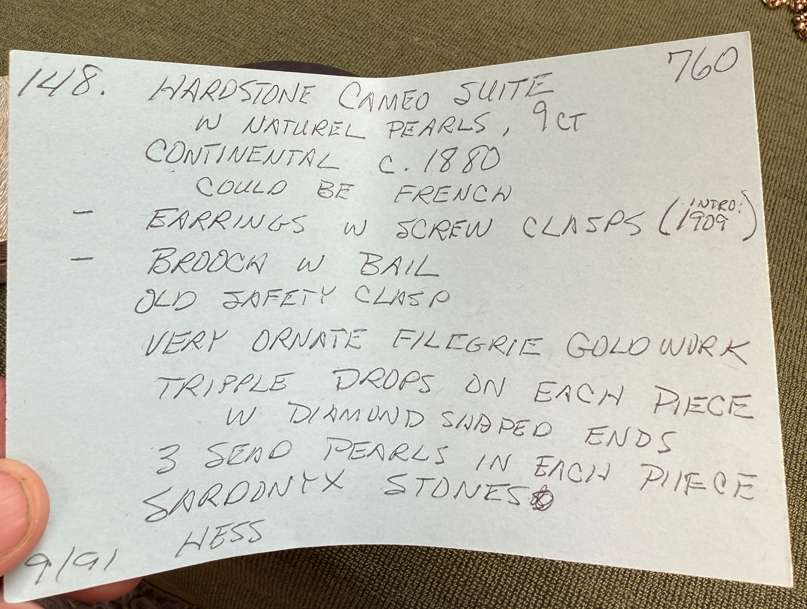 148. HARDSTONE CAMEO SUITE 760
W NATUREL PEARLS, 9CT
CONTINENTAL C. 1880
COULD BE FRENCH
- EARRINGS W SCREW CLASPS (INTRO: 1909)
- BROOCH W BAIL
OLD SAFETY CLASP
VERY ORNATE FILEGRIE GOLDWORK
TRIPPLE DROPS ON EACH PIECE
W DIAMOND SHAPED ENDS
3 SEAD PEARLS IN EACH PIIECE
SARDONYX STONES
HESS
9/91